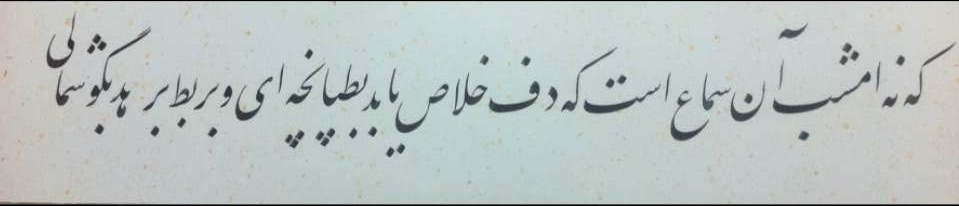 که نه امشب آن سماع است که دف خلاص یابد بطپانچه ای و بربط برهد بگوشمالی